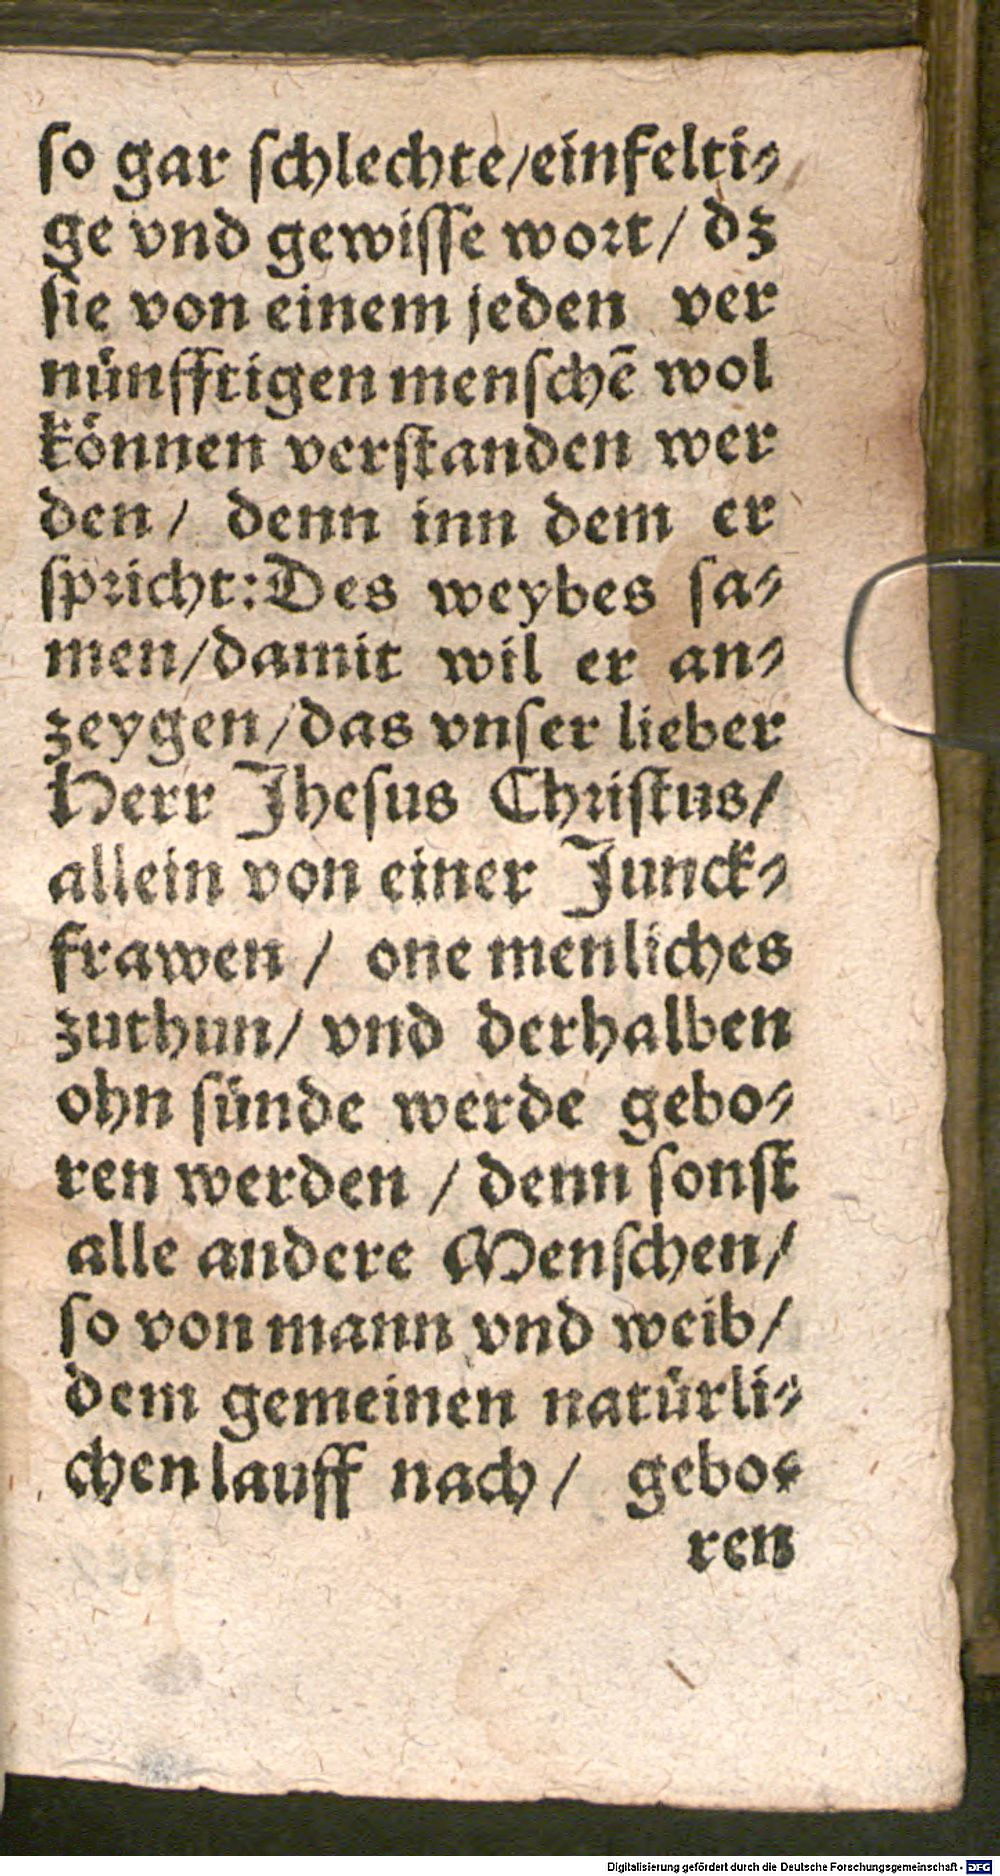 so gar schlechte/einfelti⸗
ge vnd gewisse wort/ dz
sie von einem jeden ver
nünfftigen menschē wol
können verstanden wer
den/ denn inn dem er
spricht: Des weybes sa⸗
men/damit wil er an⸗
zeygen/das vnser lieber
Herr Jhesus Christus/
allein von einer Junck⸗
frawen / one menliches
zuthun/ vnd derhalben
ohn sünde werde gebo⸗
ren werden / denn sonst
alle andere Menschen/
so von mann vnd weib/
dem gemeinen natürli⸗
chen lauff nach/ gebo⸗
ren
Digitalisierung gefördert durch die Deutsche Forschungsgemeinschaft - DFG